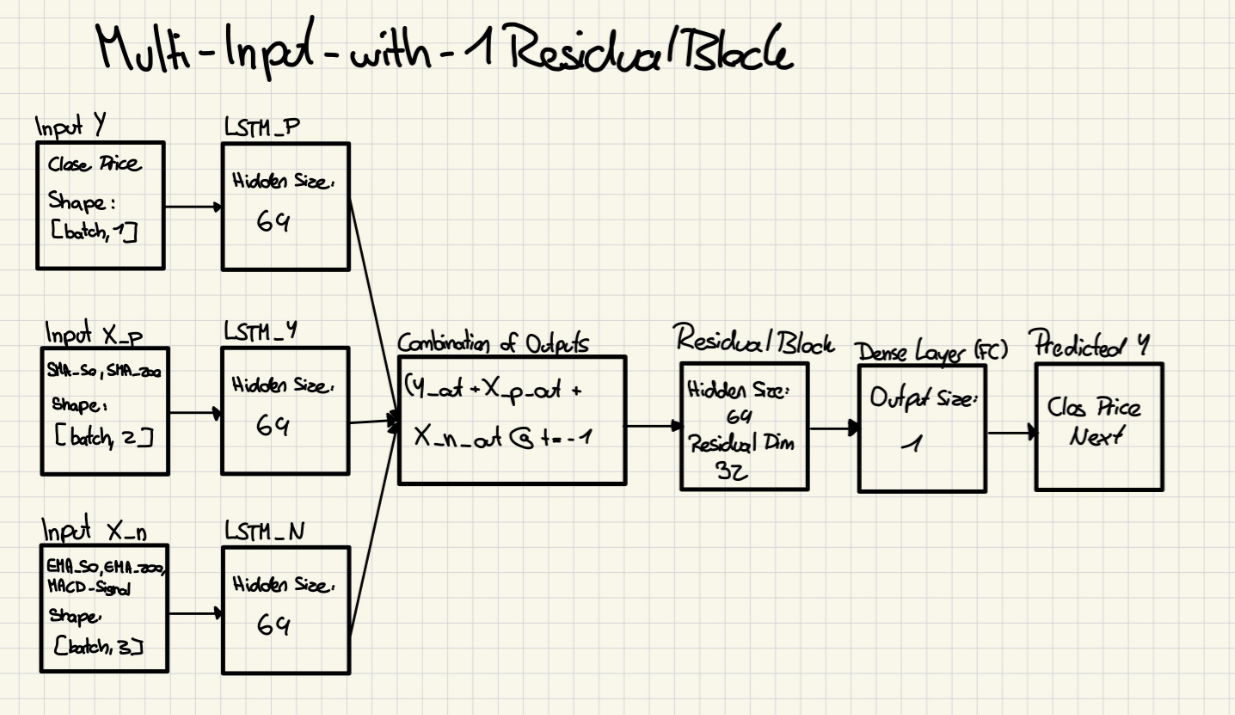 Multi-Input-with-1 Residual Block
Input Y
Close Price
Shape:
[batch, 1]
LSTM_P
Hidden Size:
64
Input X_p
SMA_50, SMA_200
Shape:
[batch, 2]
LSTM_Y
Hidden Size:
64
Input X_n
EMA_50, EMA_200,
MACD-Signal
Shape:
[batch, 3]
LSTM_N
Hidden Size:
64
Combination of Outputs
(Y_out + X_p_out +
X_n_out @ t=-1
Residual Block
Hidden Size:
64
Residual Dim
32
Dense Layer (FC)
Output Size:
1
Predicted Y
Clos Price
Next